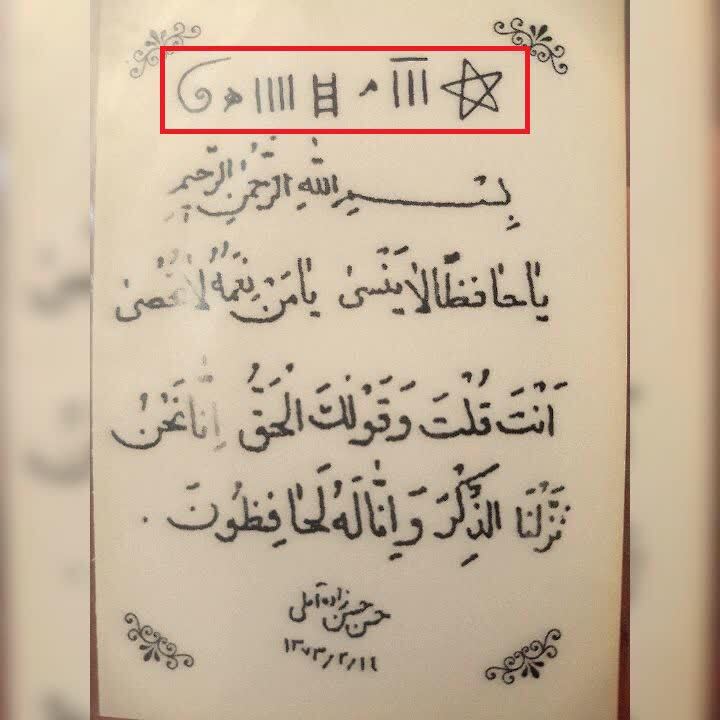 بِسْمِ اللّٰهِ الرَّحْمٰنِ الرَّحیمِ
یٰا حٰافِظًا لٰا یَنْسیٰ یٰا مَنْ نِعَمُهُ لٰا تُحْصیٰ
اَنْتَ قُلْتَ وَ قَوْلُكَ الْحَقُّ اِنّٰا نَحْنُ
نَزَّلْنَا الذِّكْرَ وَ اِنّٰا لَهُ لَحٰافِظُونَ .
حسن حسن زاده آملی
۱۳۷۳/۲/۱۴